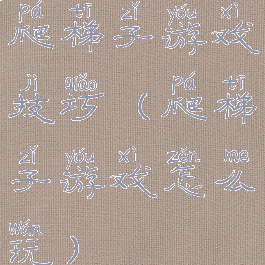 pá tī zǐ yóu xì
爬梯子游戏
jì qiǎo pá tī
技巧（爬梯
zǐ yóu xì zěn me
子游戏怎么
wán
玩）